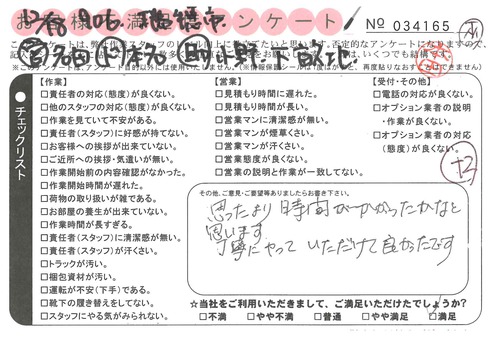 お客様満足アンケート
No 034165
【作業】
□責任者の対応(態度)が良くない。
□他のスタッフの対応(態度)が良くない。
□作業を見ていて不安がある。
□責任者(スタッフ)に好感が持てない。
□お客様への挨拶が出来ていない。
□ご近所への挨拶・気遣いが無い。
□作業開始前の内容確認がなかった。
□作業開始時間が遅れた。
□荷物の取り扱いが雑である。
□お部屋の養生が出来ていない。
□作業時間が長すぎる。
□責任者(スタッフ)に清潔感が無い。
□責任者(スタッフ)が汗くさい。
□トラックが汚い。
□梱包資材が汚い。
□運転が不安(下手)である。
□靴下の履き替えをしてない。
□スタッフにやる気がみられない。
【営業】
□見積もり時間に遅れた。
□見積もり時間が長い。
□営業マンに清潔感が無い。
□営業マンが煙草くさい。
□営業マンが汗くさい。
□営業態度が良くない。
□営業の説明と作業が一致してない。
【受付・その他】
□電話の対応が良くない。
□オプション業者の説明
・作業が良くない。
□オプション業者の対応
(態度)が良くない。
チェックリスト
その他、ご意見・ご要望等ありましたらお書き下さい。
思ったより時間がかかったかなと
思います
丁寧にやっていただけて良かったです
☆当社をご利用いただきまして、ご満足いただけたでしょうか?
□不満 □やや不満 □普通 □やや満足 □満足